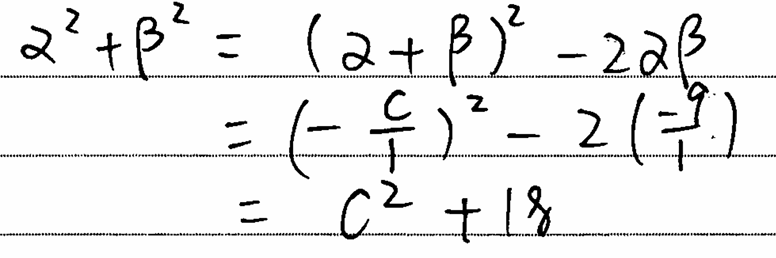 α² + β² = (α + β)² - 2αβ
= (- c/1)² - 2(-9/1)
= c² + 18